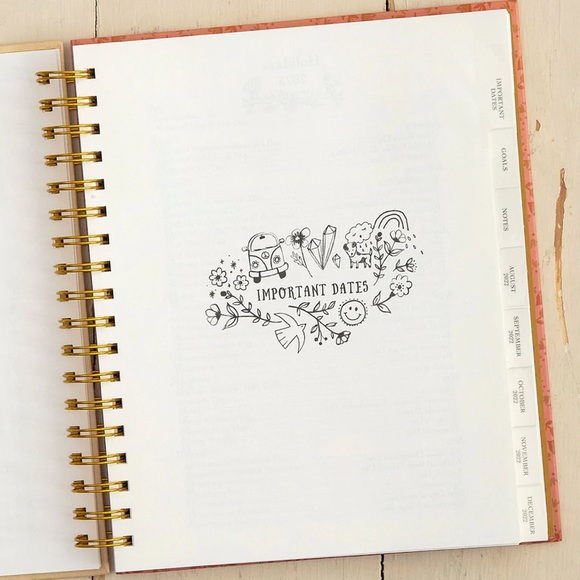 IMPORTANT DATES
IMPORTANT
DATES
GOALS
NOTES
AUGUST
2022
SEPTEMBER
2022
OCTOBER
2022
NOVEMBER
2022
DECEMBER
2022